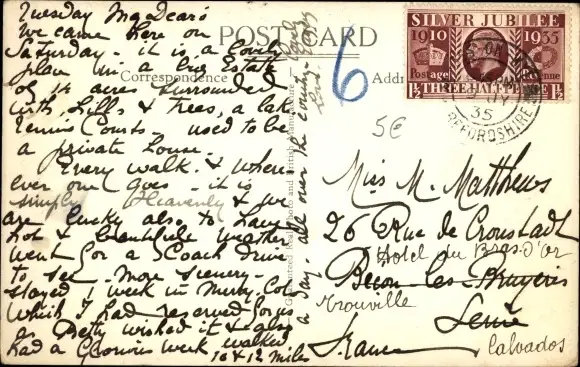 POST CARD
Correspondence
Address
Tuesday My Dears
We came here on
Saturday - it is a lovely
place in a big Estate
of 14 acres surrounded
with, hills & trees, a lake
Tennis Courts - used to be
a private house.
Every walk & where
ever one goes - it is
simply Heavenly & we
are lucky also to have
hot & beautiful weather
went for a Coach drive
to see - more scenery -
stayed 1 week in
which I had reserved for us
as Betty wished it & also
had a Glorious week walked
10 & 12 miles
a day - all over the country
SILVER JUBILEE
1910 1935
Postage Revenue
1½ THREE HALFPENCE 1½
35
REFORDSHIRE
6
5€
Miss M. Matthews
26 Rue de Cronstadt
Hotel du Bras-D'or
Bécon-les-Bruyères
Trouville
Seine
France
Calvados